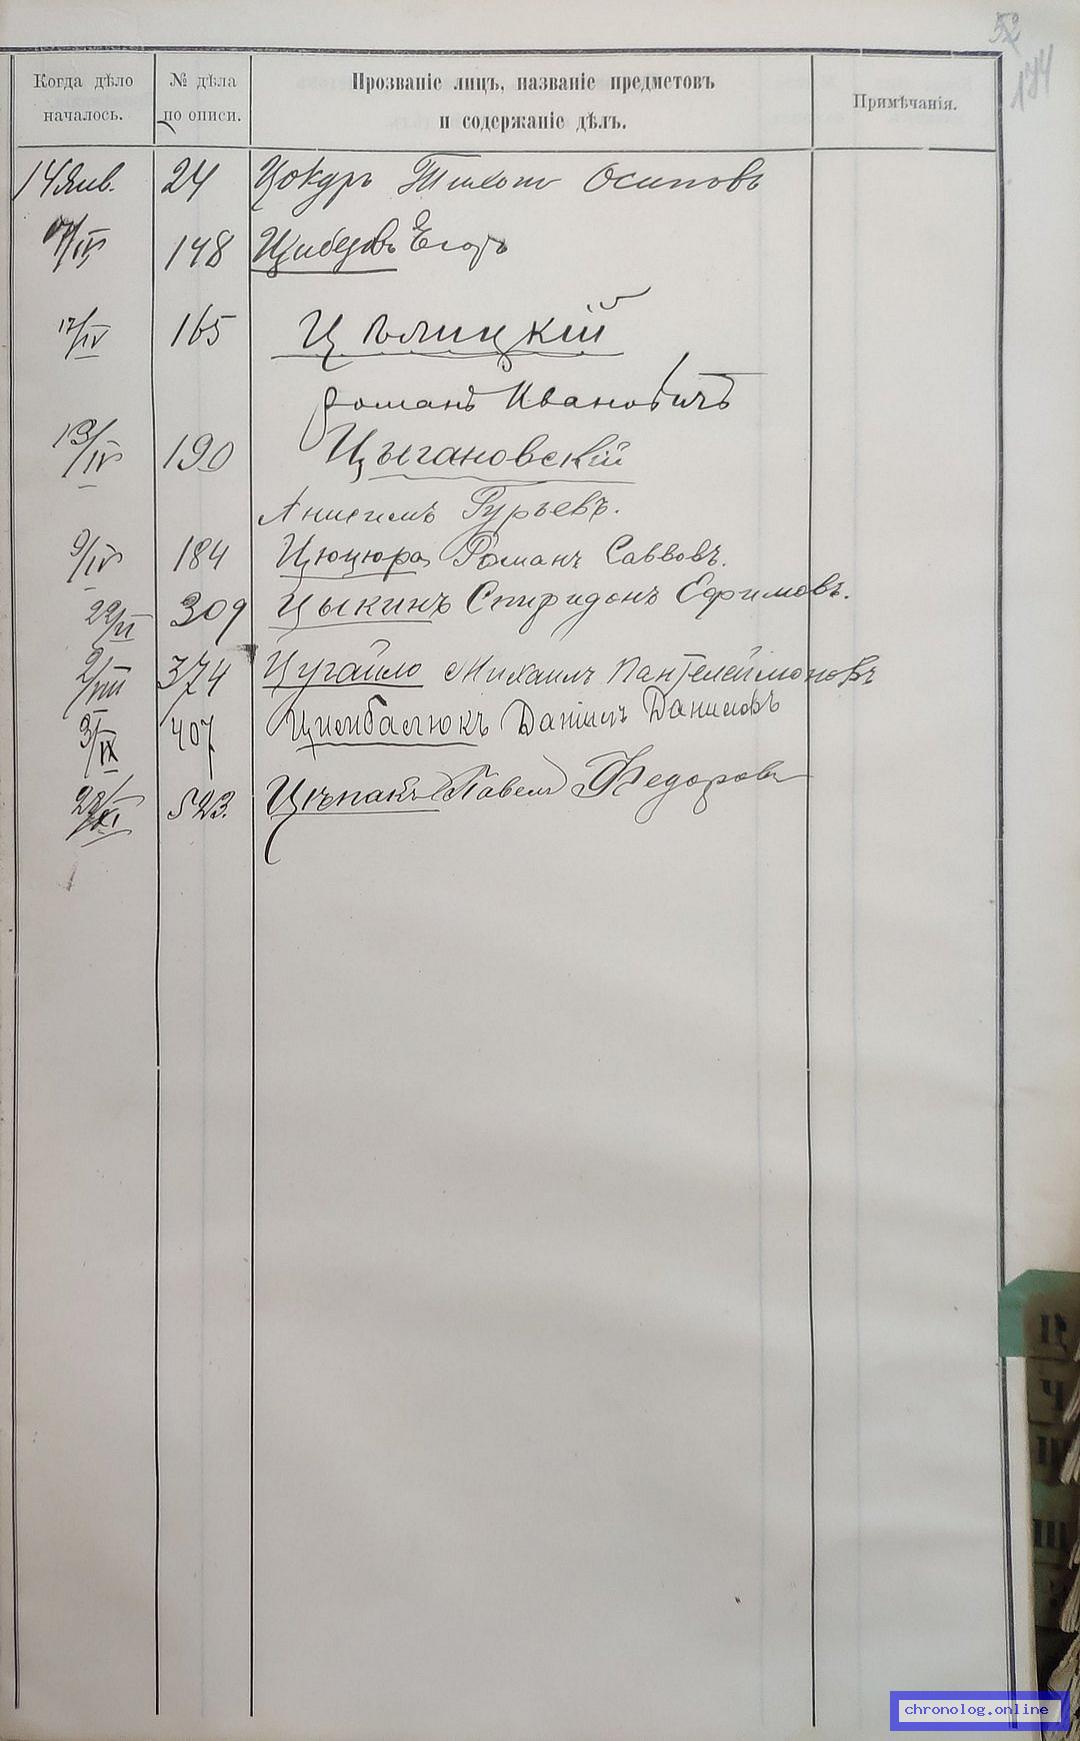 52
174
Когда дѣло началось.
№ дѣла по описи.
Прозваніе лицъ, названіе предметовъ и содержаніе дѣлъ.
Примѣчанія.
14 Янв. 24 Цокуръ Тихонъ Осиповъ
/IV 148 Цибезовъ Егоръ
17/IV 165 Цѣлицкій
Романъ Ивановичъ
13/IV 190 Цыгановскій
Анисимъ Гурьевъ.
9/IV 184 Цюцюра Романъ Саввовъ.
22/VI 309 Цыкинъ Спиридонъ Ефимовъ.
2/VIII 374 Цугайло Михаилъ Пантелеймоновъ
3/IX 407 Цимбалюкъ Даніилъ Даниловъ
/XI 523. Цѣпакъ Павелъ Федоровъ
chronolog.online